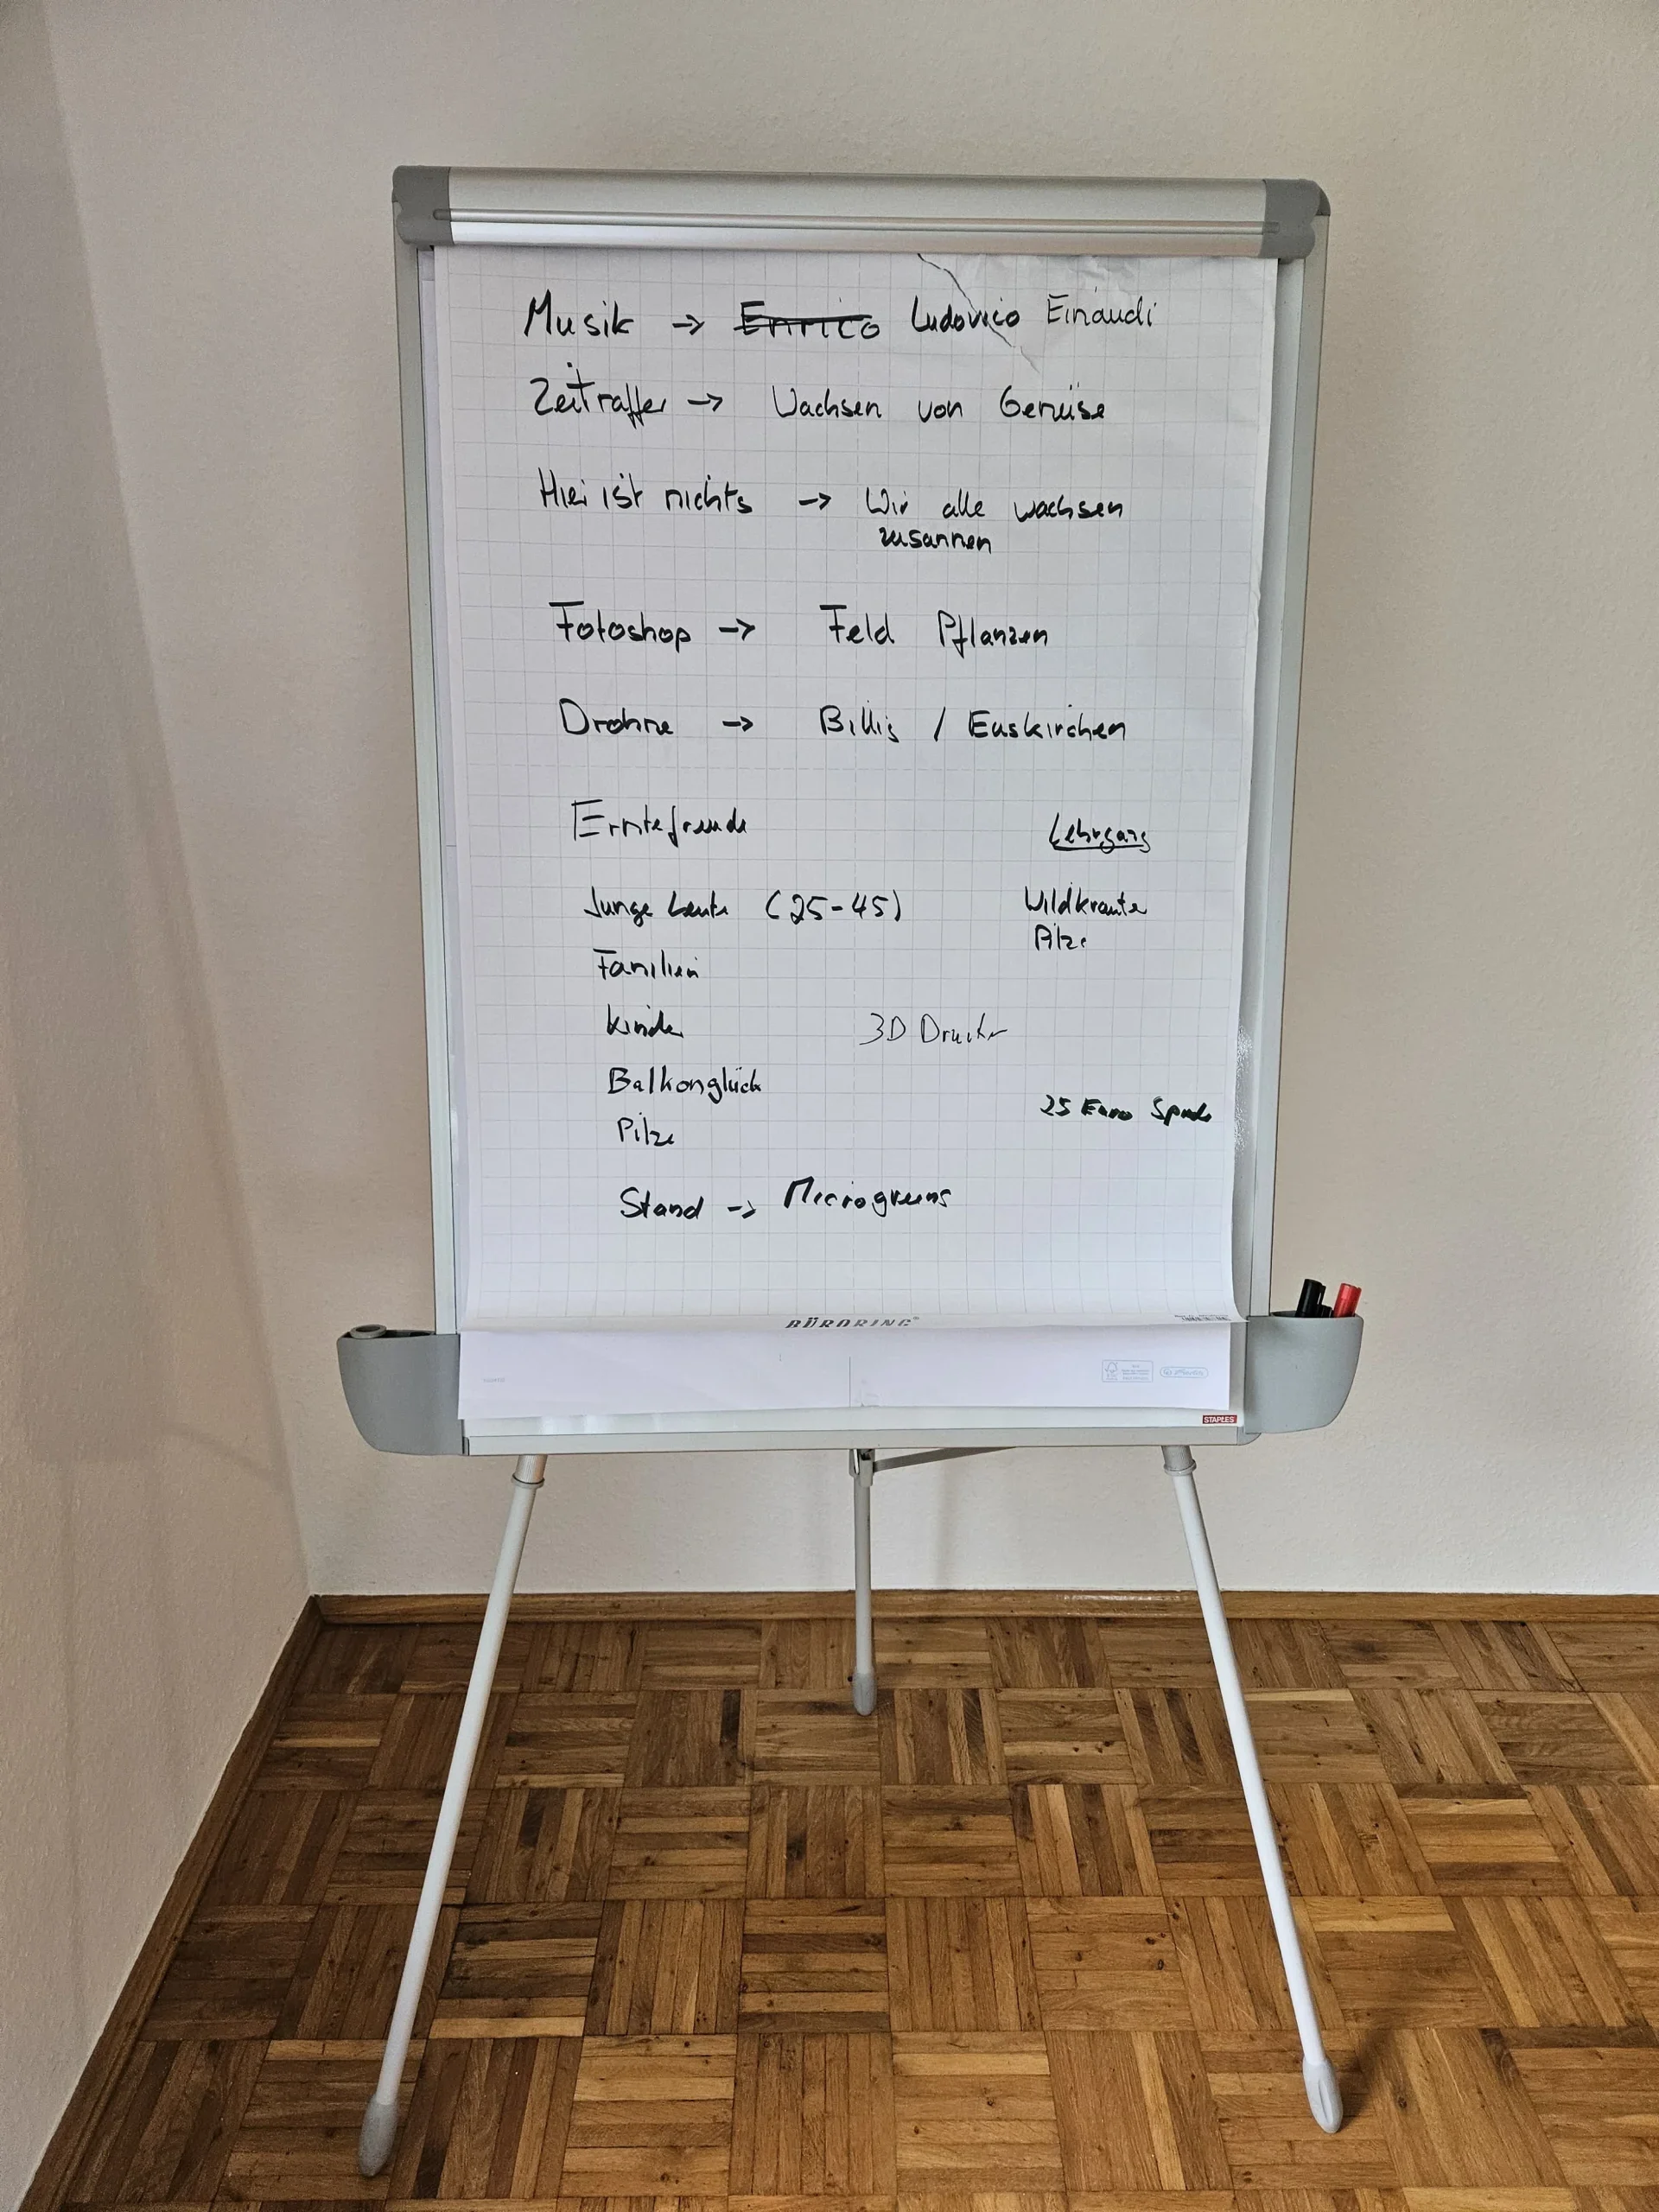 Musik -> Enrico Ludovico Einaudi
Zeitraffer -> Wachsen von Gemüse
Hier ist nichts -> Wir alle wachsen
zusammen
Fotoshop -> Feld Pflanzen
Drohne -> Billig / Euskirchen
Erntefreude
Lehrgang
Junge Leute (25-45)
Wildkräuter
Pilze
Familien
Kinder
3D Drucker
Balkonglück
25 Euro
Pilze
Stand -> Microgreens
BÜRORING
STAPLES